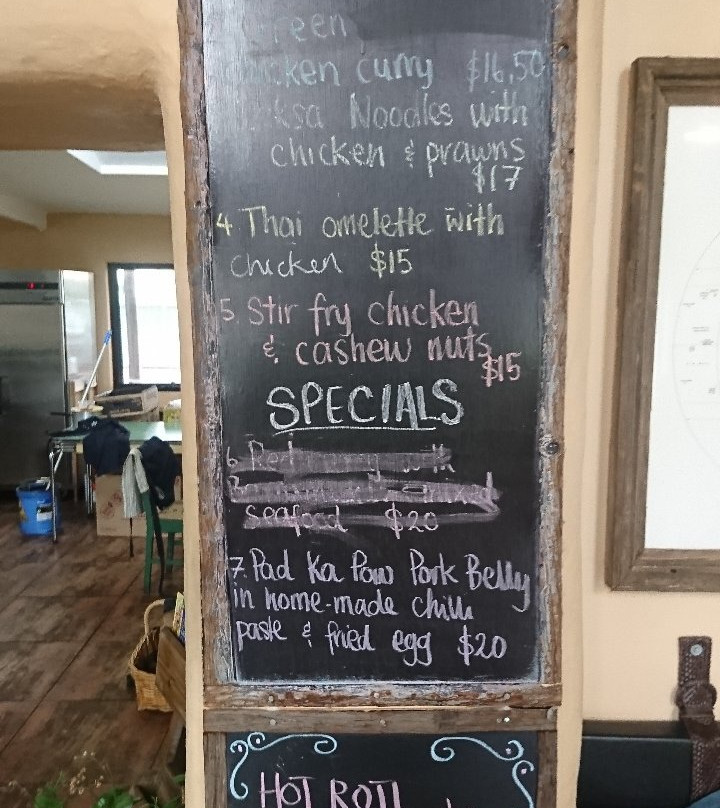 Green
chicken curry $16.50
Laksa Noodles with
chicken & prawns
$17
4. Thai omelette with
chicken $15
5. Stir fry chicken
& cashew nuts
$15
SPECIALS
6. Red curry with
mixed
seafood $20
7. Pad Ka Pow Pork Belly
in home-made chilli
paste & fried egg $20
HOT ROTI